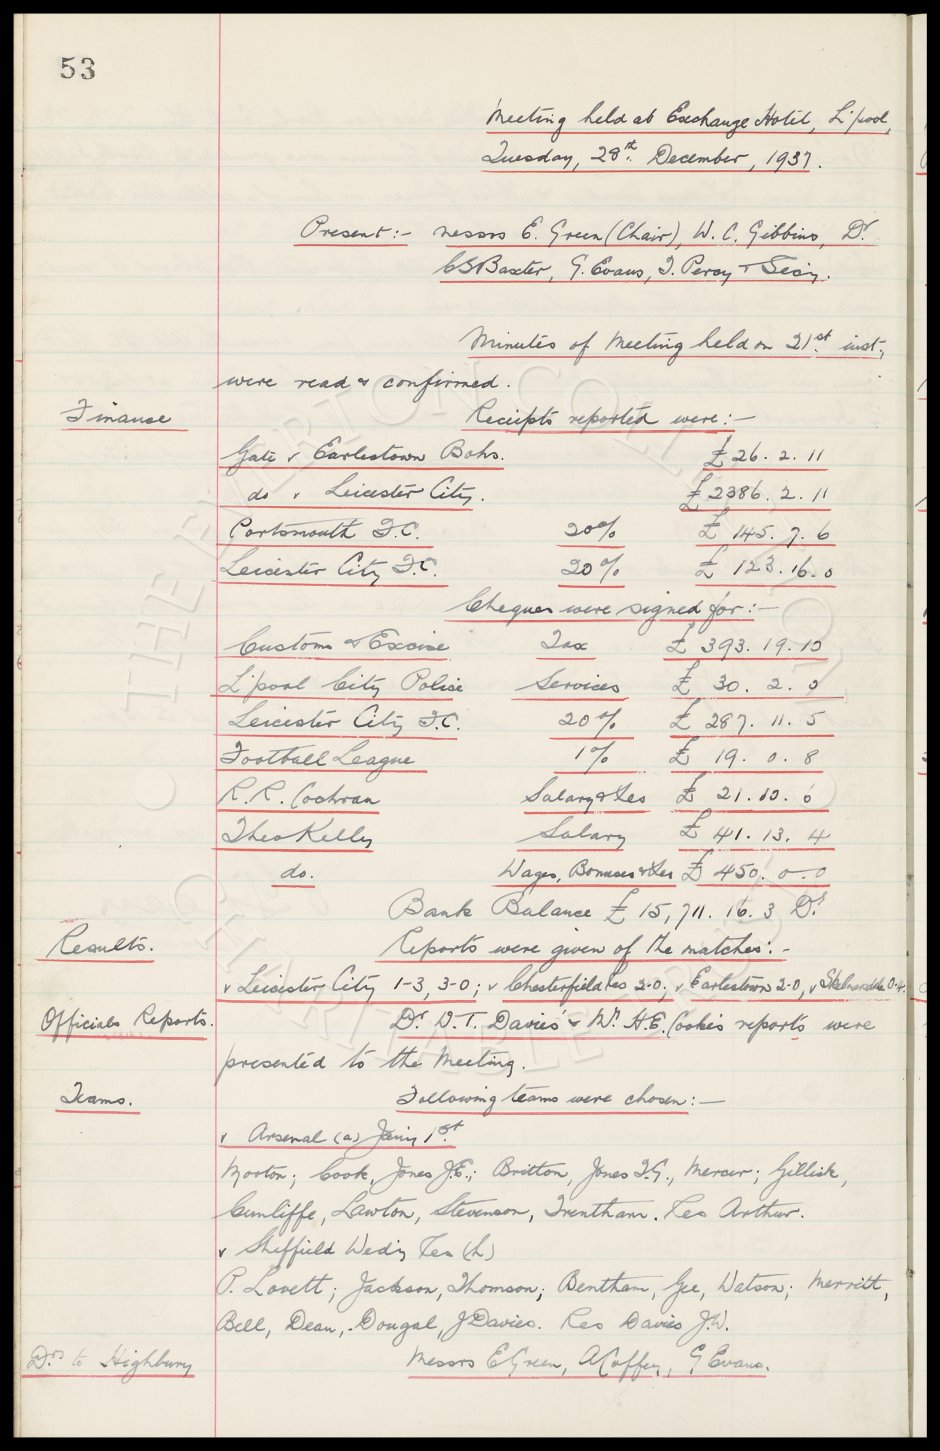 53
Meeting held at Exchange Hotel, L'pool,
Tuesday, 28th. December, 1937.
Present:- Messrs E. Green (Chair), W. C. Gibbins, Dr
C S Baxter, G. Evans, T. Percy & Secy.
Minutes of Meeting held on 21st. inst.,
were read & confirmed.
Finance Receipts reported were:-
Gate v Earlestown Bohs. £26. 2. 11
do v Leicester City. £2386. 2. 11
Portsmouth F.C. 20% £145. 7. 6
Leicester City F.C. 20% £123. 16. 0
Cheques were signed for:-
Customs & Excise Tax £393. 19. 10
L'pool City Police Services £30. 2. 0
Leicester City F.C. 20% £287. 11. 5
Football League 1% £19. 0. 8
R. R. Cochran Salary & Exs £21. 10. 0
Theo Kelly Salary £41. 13. 4
do. Wages, Bonuses & Exs £450. 0. 0
Bank Balance £15,711. 16. 3 Dr
Results. Reports were given of the matches:-
v Leicester City 1-3, 3-0; v Chesterfield Res 2-0; v Earlestown 2-0, v 0-4.
Officials Reports. Dr D. T. Davies' & Mr H. E. Cooke's reports were
presented to the Meeting.
Teams. Following teams were chosen:-
v Arsenal (a) Jany 1st.
Morton; Cook, Jones J.E.; Britton, Jones T.G., Mercer; Gillick,
Cunliffe, Lawton, Stevenson, Trentham. Res Arthur.
v Sheffield Wedy Res (h)
P. Lovett; Jackson, Thomson; Bentham, Gee, Watson; Merritt,
Bell, Dean, Dougal, J Davies. Res Davies J.W.
Drs to Highbury Messrs E Green, A Coffey, G Evans.